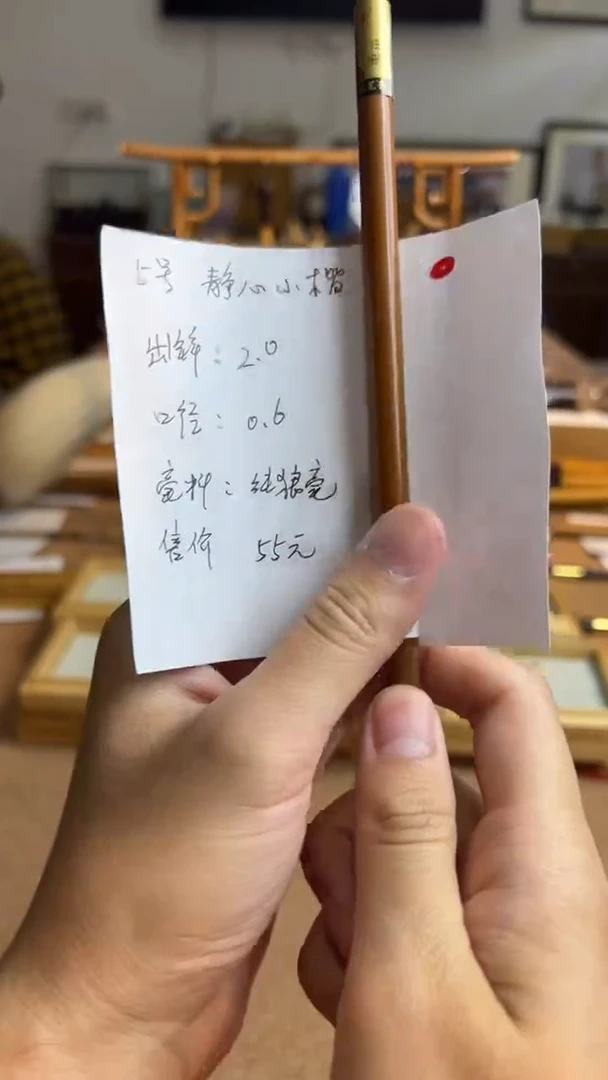 5号 静心小楷
出锋：2.0
口径：0.6
毫料：纯狼毫
售价 55元